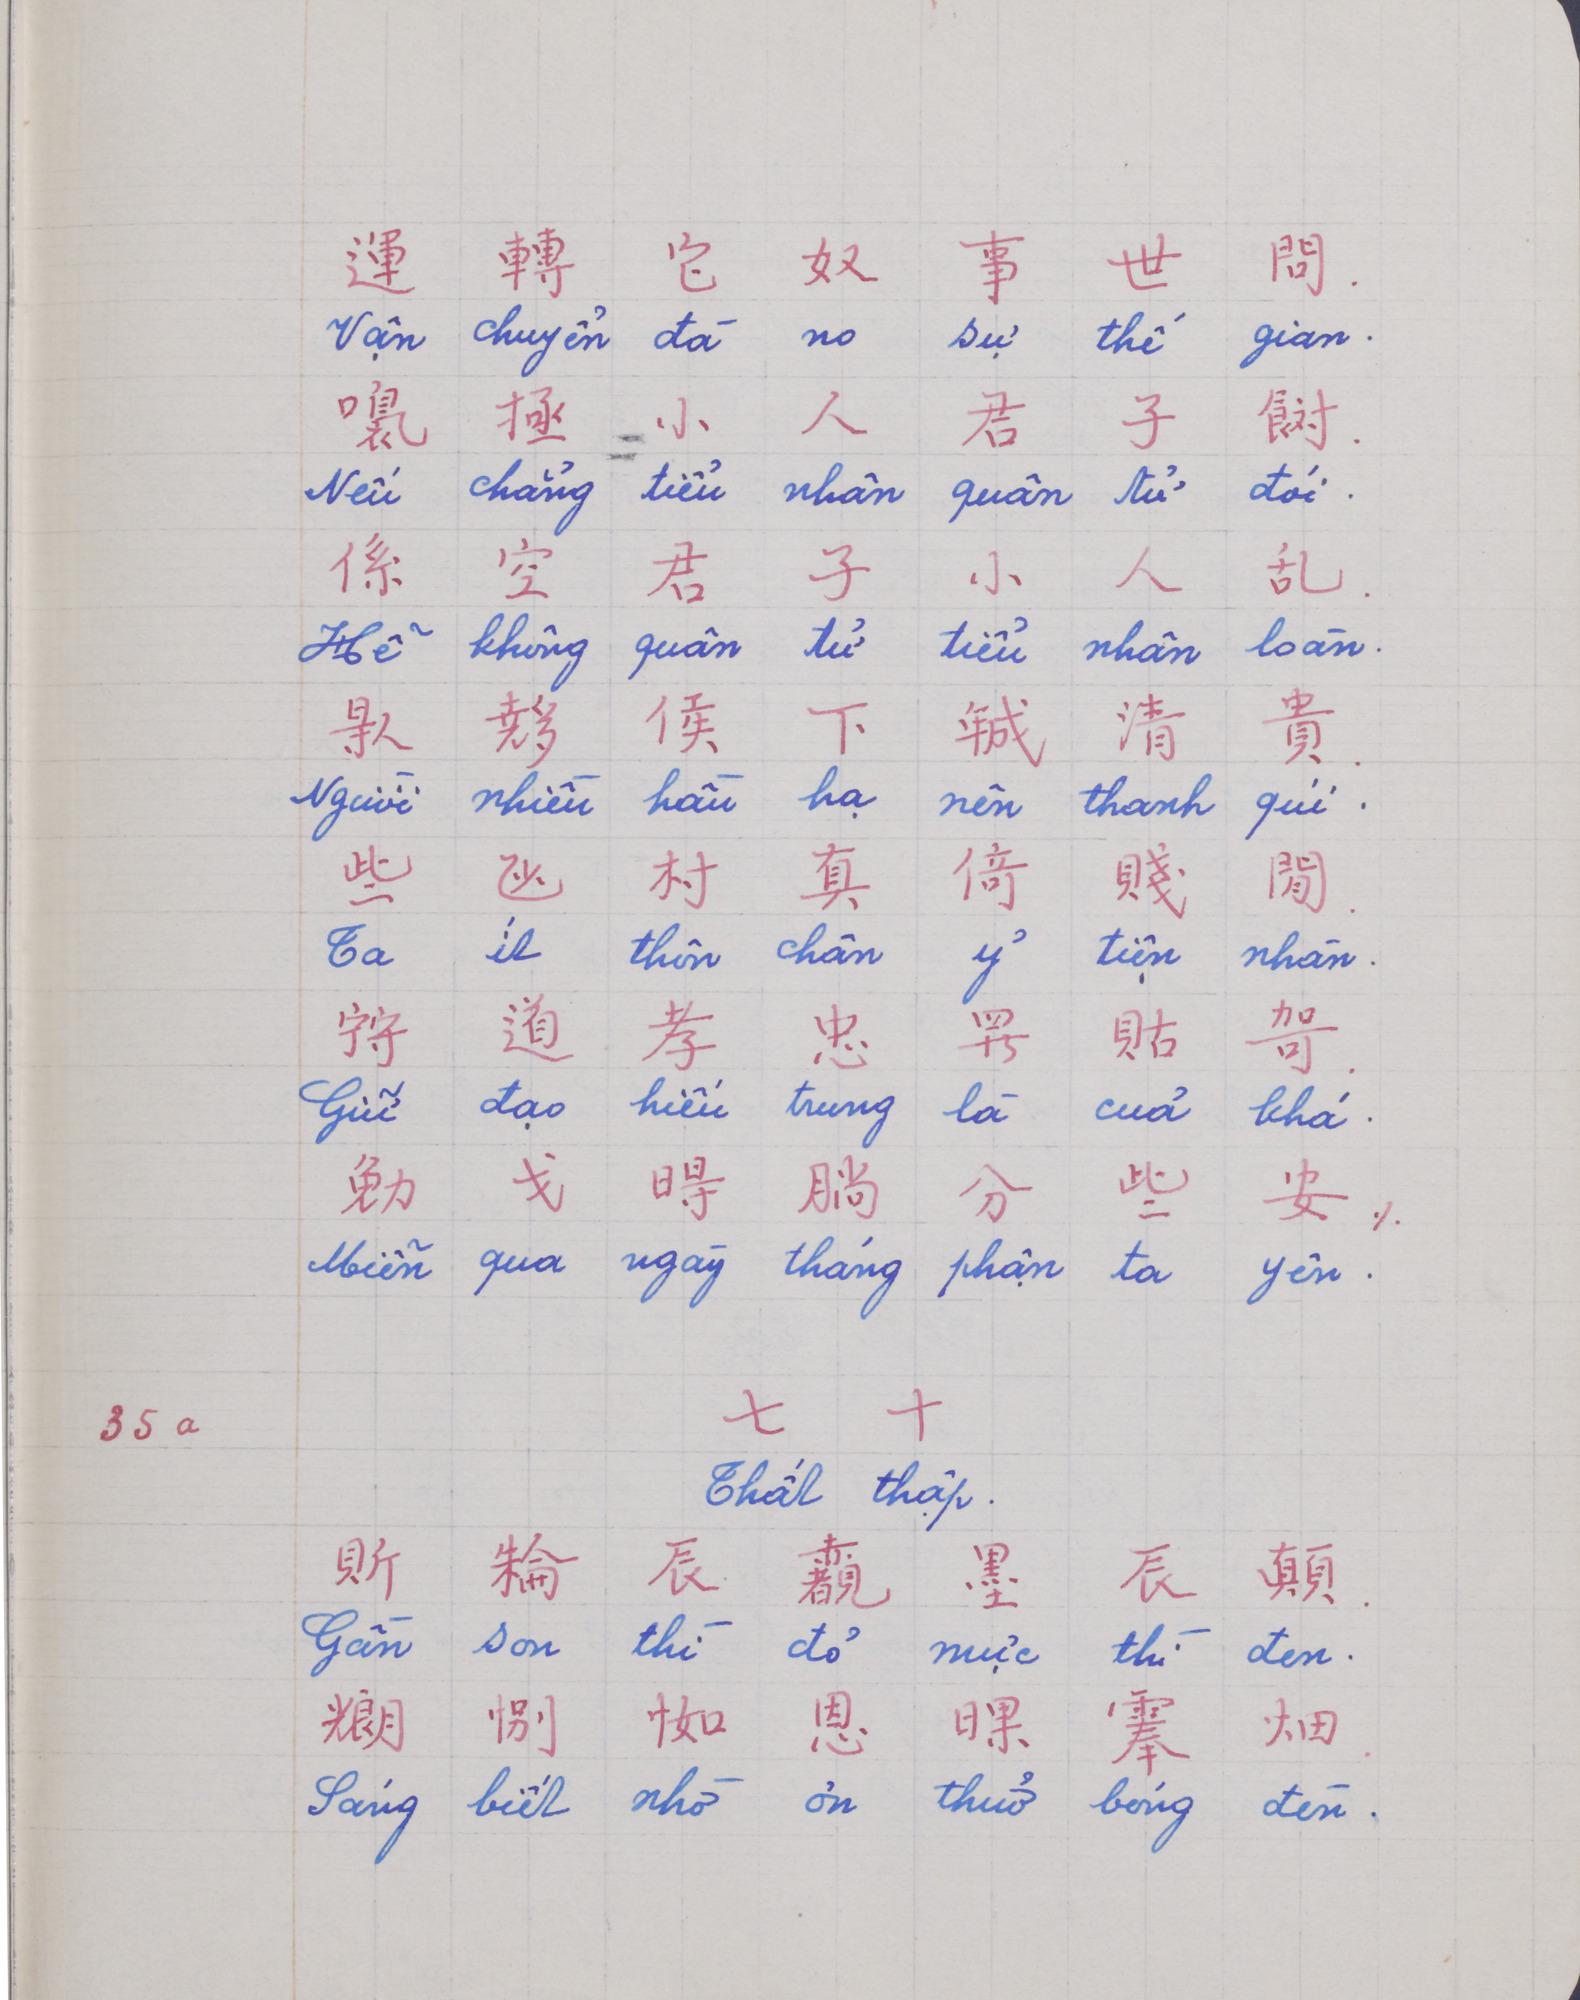 運 轉 它 奴 事 世 間.
Vận chuyển đà no sự thế gian.
極 小 人 君 子 .
Nếu chẳng tiểu nhân quân tử đói.
係 空 君 子 小 人 乱.
Hễ không quân tử tiểu nhân loàn.
侯 下 清 貴.
Người nhiều hầu hạ nên thanh quí.
些 村 真 倚 賤 閒.
Ta ít thôn chân ỷ tiện nhàn.
道 孝 忠 貼 哿.
Giữ đạo hiếu trung là cuả khá.
勉 戈 㫰 分 些 安 ٪
Miễn qua ngày tháng phận ta yên.
35 a
七 十
Thất thập.
辰 墨 辰 顛.
Gần son thì đỏ mực thì đen.
恩 畑.
Sáng biết nhờ ơn thuở bóng đèn.